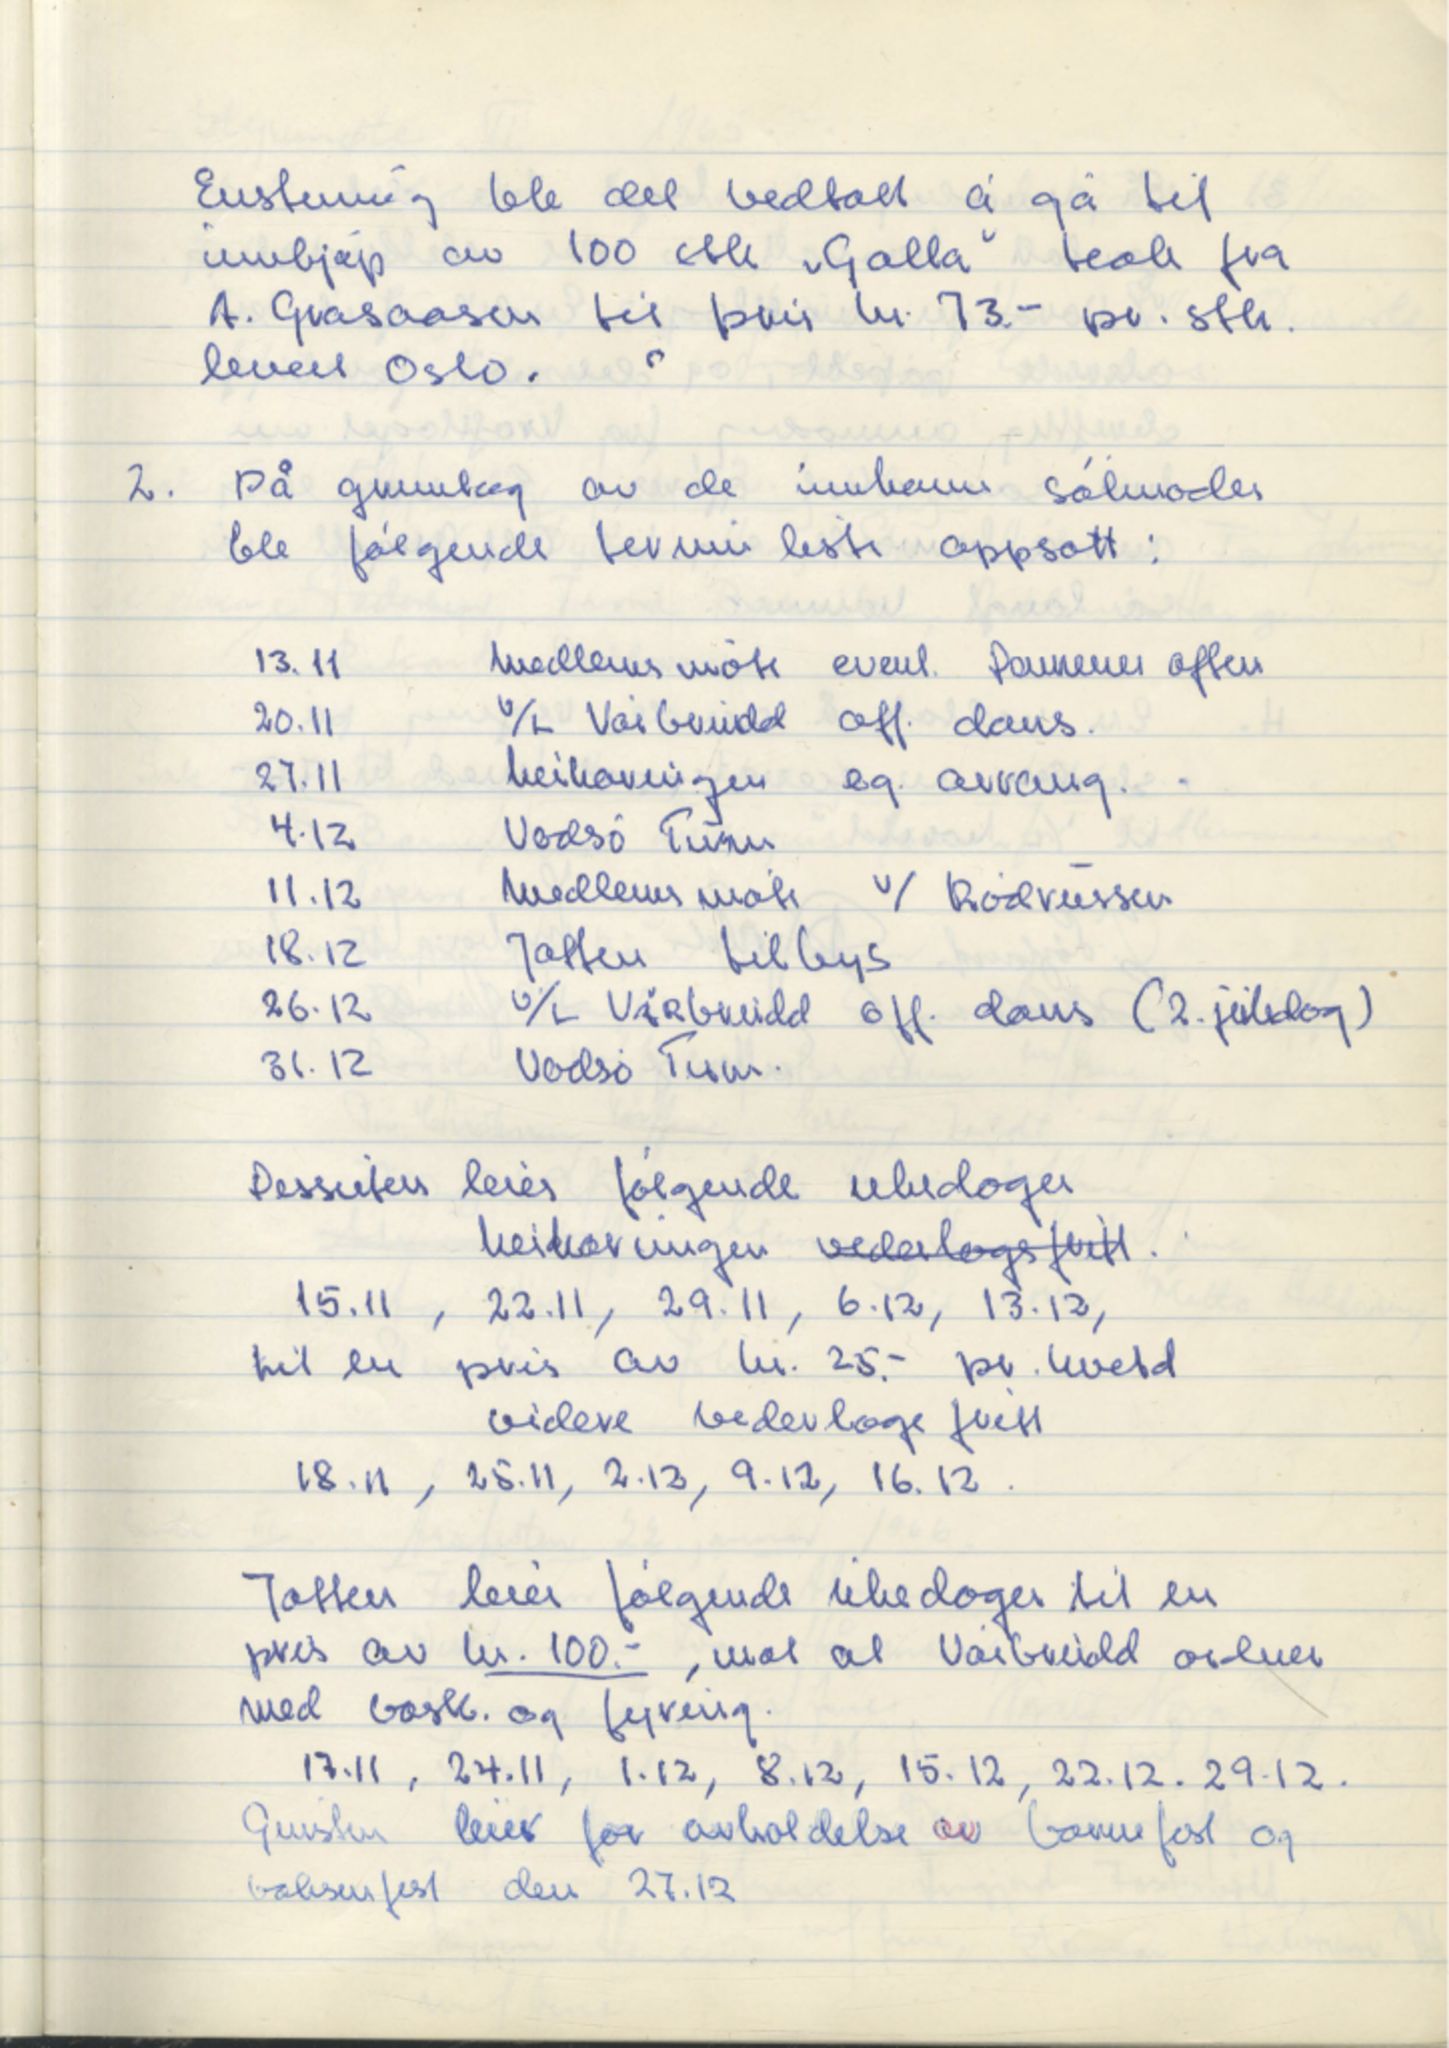 Enstemmig ble det vedtatt å gå til
innkjøp av 100 stk „Galla" teak fra
A. Grasaasen til pris kr. 73.- pr. stk.
levert Oslo.
2. På grunnlag av de innkomne søknader
ble følgende terminliste oppsatt:
13.11 Medlemsmöte event. Damenes aften
20.11 U/L Vårbrudd off. dans.
27.11 Heikameringen eg. arrang.
4.12 Vadsö Turn
11.12 Medlemsmöte v/ Rödrussen
18.12 Jatten tilbys
26.12 U/L Vårbrudd off. dans (2. juledag)
31.12 Vadsö Turn.
Dessuten leier følgende ukedager
vederlagsfritt.
15.11, 22.11, 29.11, 6.12, 13.12,
til en pris av kr. 25.- pr. kveld
videre vederlagsfritt
18.11, 25.11, 2.12, 9.12, 16.12.
Jatten leier følgende ukedager til en
pris av kr. 100.-, mot at Vårbrudd ordner
med vask. og fyring.
17.11, 24.11, 1.12, 8.12, 15.12, 22.12. 29.12.
leier for avholdelse av barnefest og
voksenfest den 27.12